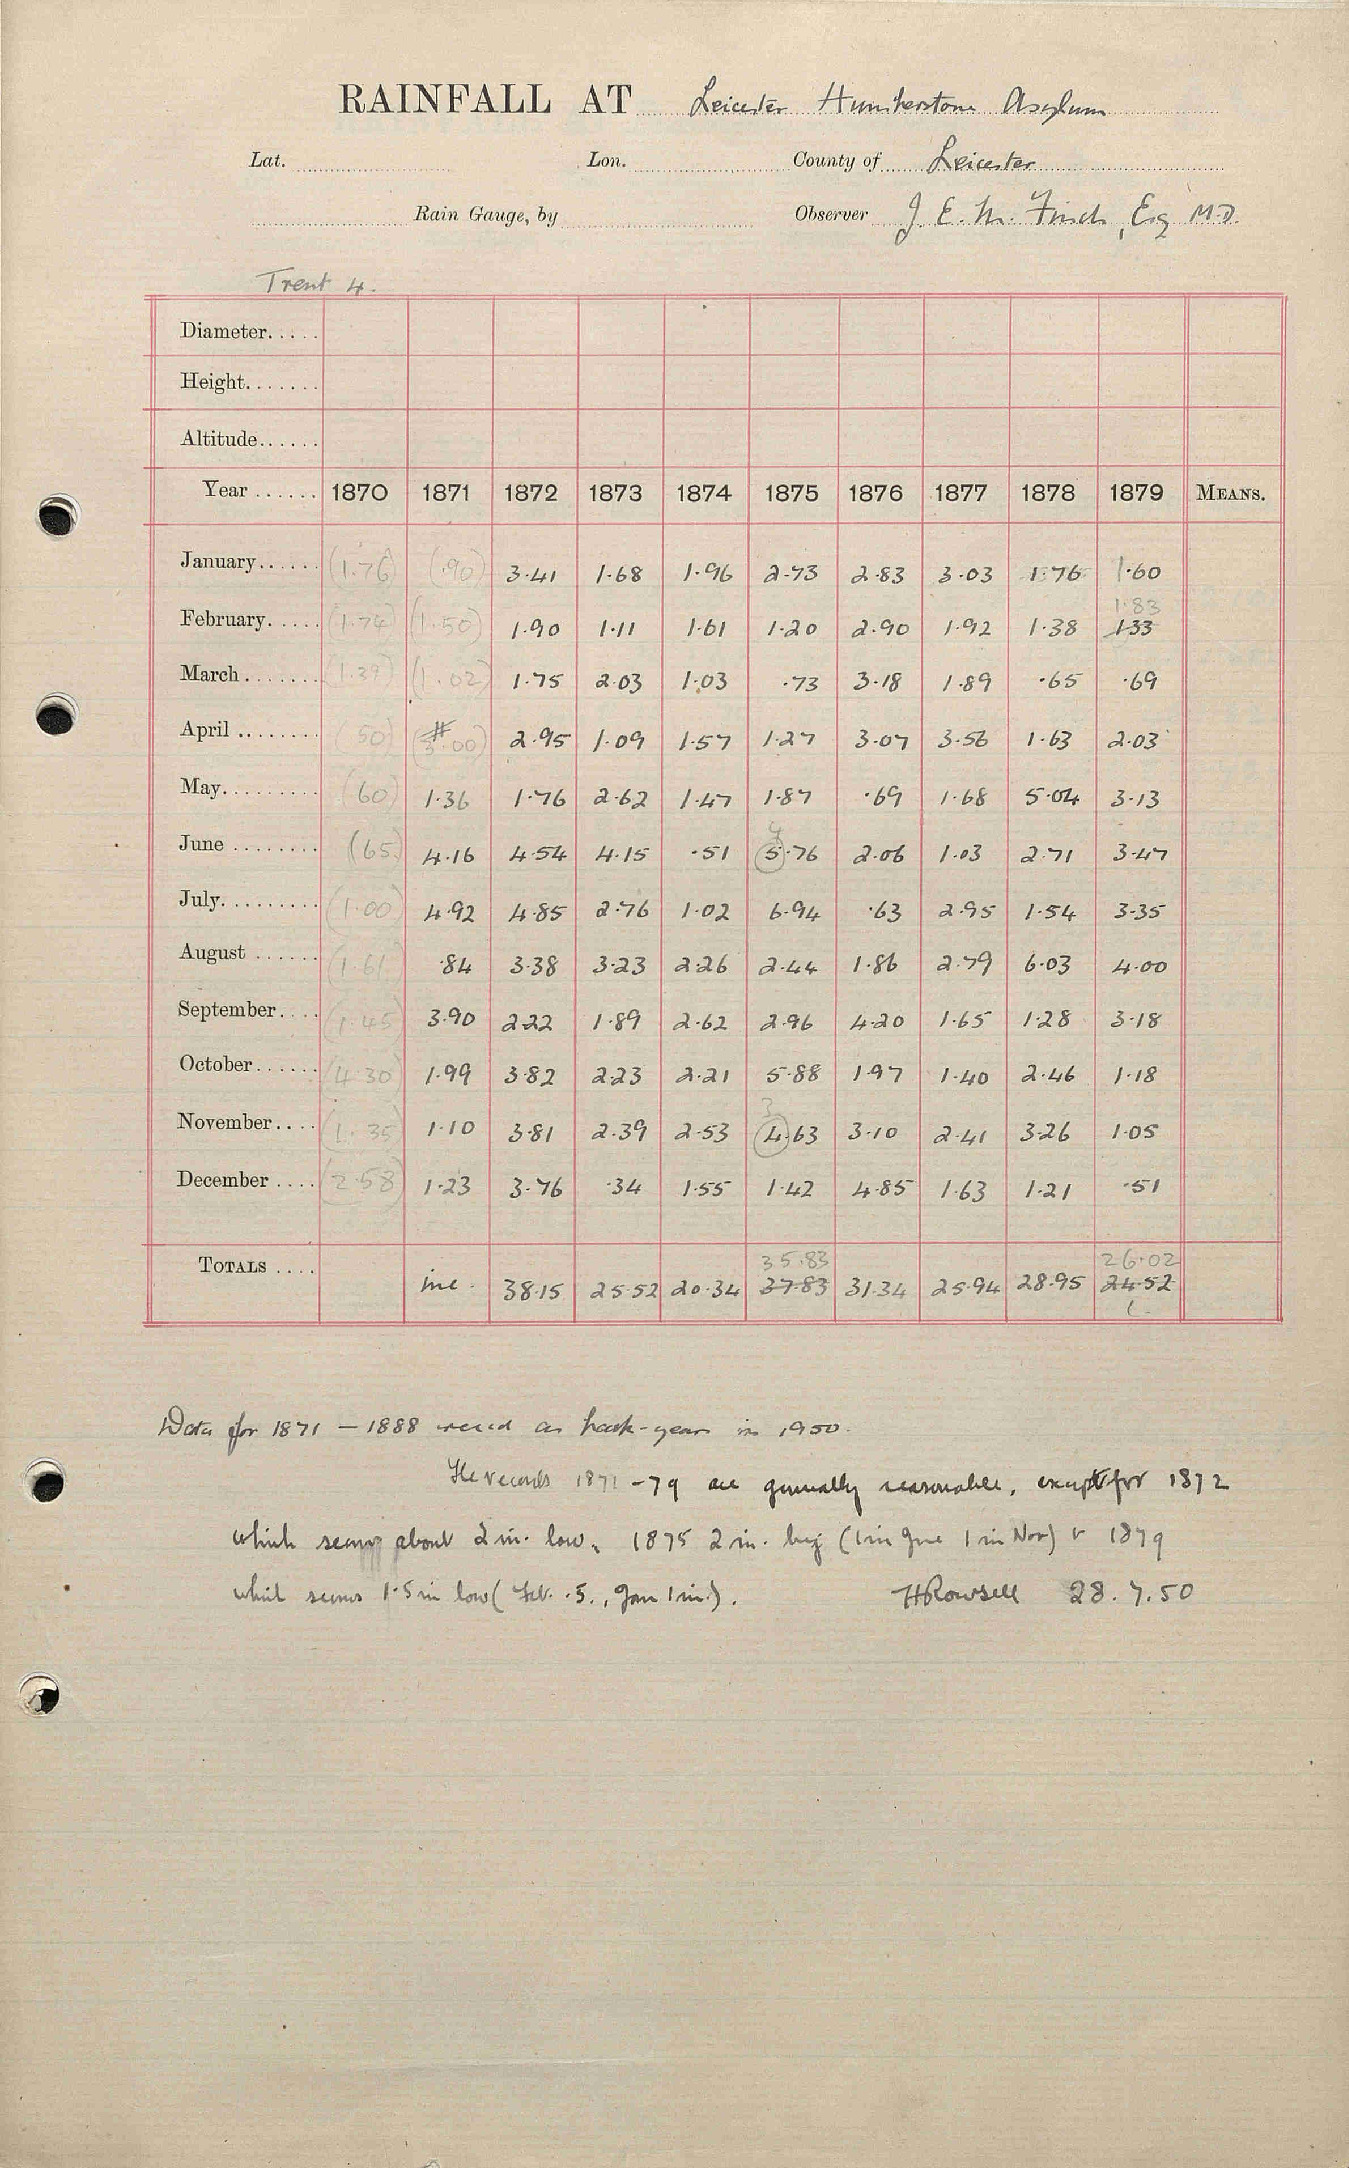 RAINFALL AT Leicester Humberstone Asylum
Lat. Lon. County of Leicester
Rain Gauge, by Observer J. E. M. Finch, Esq M.D.
Trent 4.
Diameter.....
Height.......
Altitude......
Year ...... 1870 1871 1872 1873 1874 1875 1876 1877 1878 1879 MEANS.
January...... (1.76) (.90) 3.41 1.68 1.96 2.73 2.83 3.03 1.76 1.60
1.83
February..... (1.74) (1.50) 1.90 1.11 1.61 1.20 2.90 1.92 1.38 1.33
March....... (1.39) (1.02) 1.75 2.03 1.03 .73 3.18 1.89 .65 .69
April ........ (50) (3.00) 2.95 1.09 1.57 1.27 3.07 3.56 1.63 2.03
May......... (60) 1.36 1.76 2.62 1.47 1.87 .69 1.68 5.04 3.13
4
June ........ (65) 4.16 4.54 4.15 .51 5.76 2.06 1.03 2.71 3.47
July......... (1.00) 4.92 4.85 2.76 1.02 6.94 .63 2.95 1.54 3.35
August ...... (1.61) .84 3.38 3.23 2.26 2.44 1.86 2.79 6.03 4.00
September.... (1.45) 3.90 2.22 1.89 2.62 2.96 4.20 1.65 1.28 3.18
October...... (4.30) 1.99 3.82 2.23 2.21 5.88 1.97 1.40 2.46 1.18
3
November.... (1.35) 1.10 3.81 2.39 2.53 4.63 3.10 2.41 3.26 1.05
December .... (2.58) 1.23 3.76 .34 1.55 1.42 4.85 1.63 1.21 .51
35.83 26.02
TOTALS .... inc. 38.15 25.52 20.34 37.83 31.34 25.94 28.95 24.52
Data for 1871 – 1888 recd as back-years in 1950.
The records 1871 – 79 are generally reasonable, except for 1872
which seems about 2 in. low, 1875 2 in. big (1 in June 1 in Nov) & 1879
which seems 1.5 in low ( Feb. .5., Jan 1 in.).
HRowsell 28.7.50